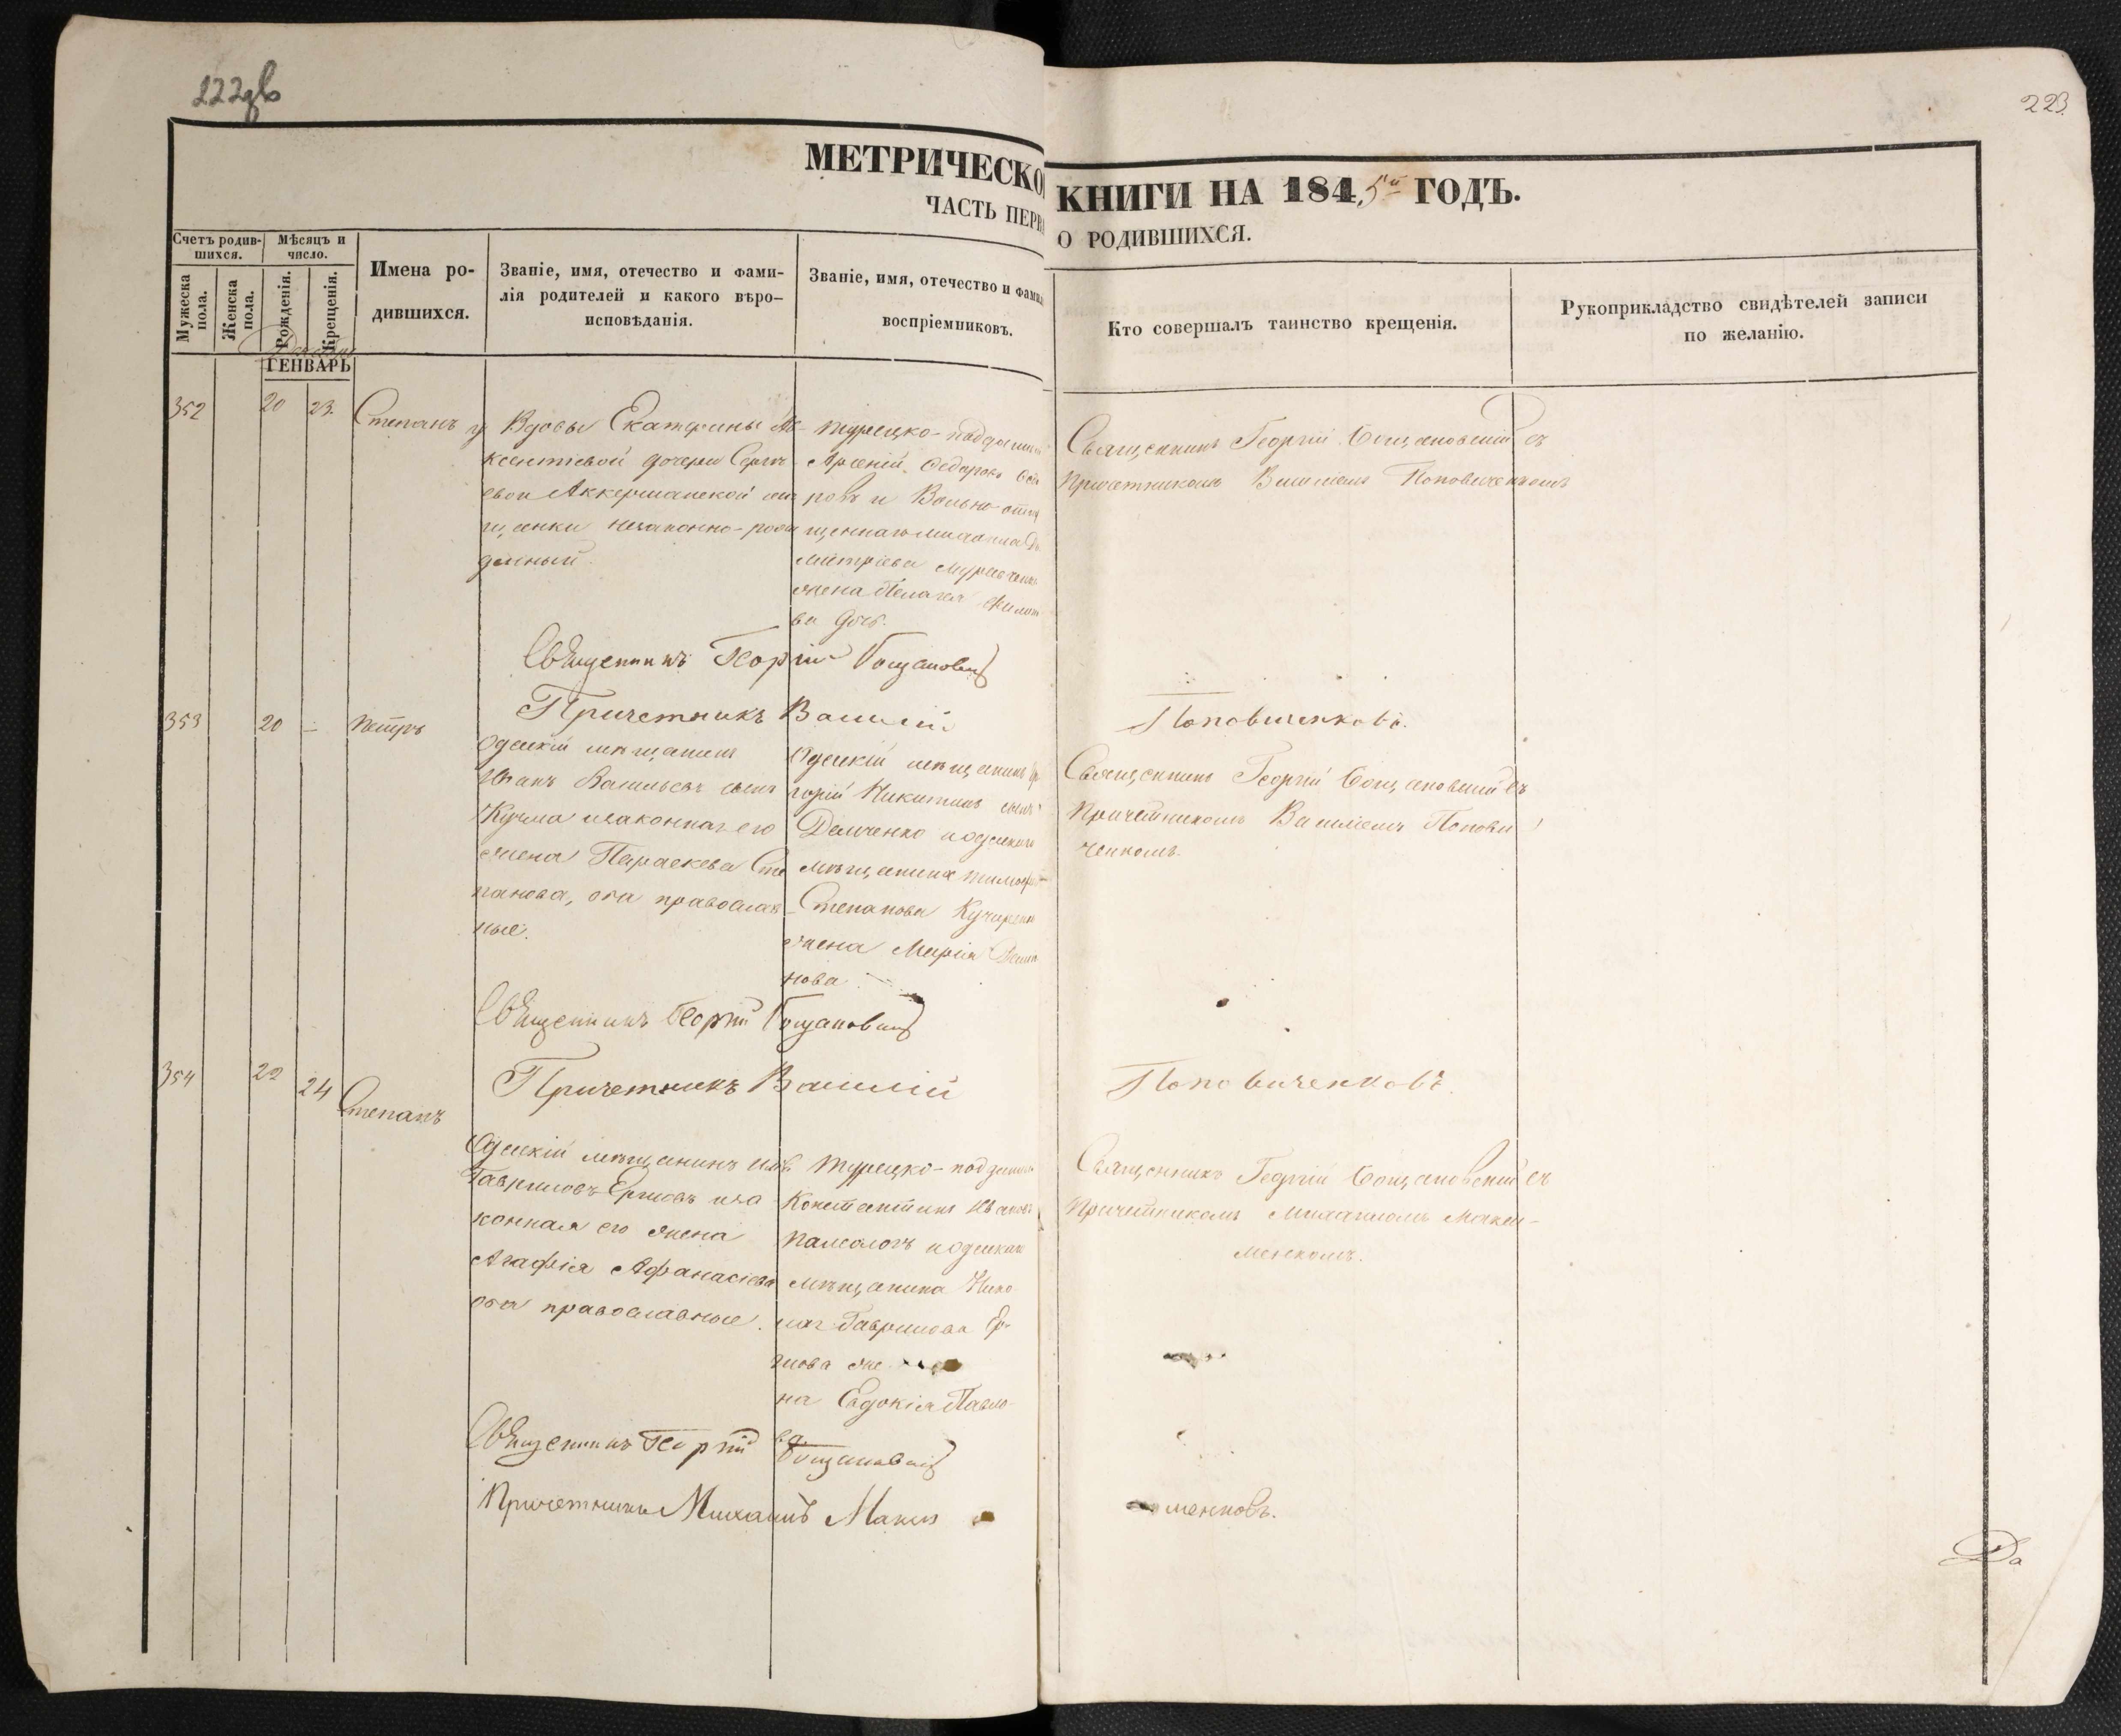 222об
223.
МЕТРИЧЕСКО
КНИГИ НА 1845й ГОДЪ.
ЧАСТЬ ПЕРВ
О РОДИВШИХСЯ.
Счетъ родив-
шихся.
Мѣсяцъ и
число.
Мужеска
пола.
Женска
пола.
Рожденія.
Крещенія.
Имена ро-
дившихся.
Званіе, имя, отечество и фами-
лія родителей и какого вѣро-
исповѣданія.
Званіе, имя, отечество и фами
воспріемниковъ.
Кто совершалъ таинство крещенія.
Рукоприкладство свидѣтелей записи
по желанію.
ГЕНВАРЬ
352
20
23.
Степанъ
у Вдовы Екатерины
дочери
Аккерманской
щанки незаконно-рож
денный.
турецко-поддан
Арсеній
ровъ и Вольно-отпу
щеннаго Михаила Ди
митріева
жена Пелагея
ва дочь.
Священникъ Георгій Бощановскій съ
Причетникомъ Василіемъ Поповиченкомъ
Священникъ Георгій Бощановскій
Причетникъ Василій
Поповиченковъ.
353
20
-
Петръ
Одескій мѣщанинъ
Иванъ Васильевъ сынъ
Кучма и законная его
жена Параскева Сте
панова, оба православ
ные.
Одескій мѣщанинъ Гри
горій Никитинъ сынъ
Демченко и одескаго
мѣщанина Тимофея
Степанова
жена Марія
нова
Священникъ Георгій Бощановскій съ
Причетникомъ Василіемъ Попови
ченкомъ.
Священникъ Георгій Бощановскій
Причетникъ Василій
Поповиченковъ.
354
22
24
Степанъ
Одескій мѣщанинъ
Гавриловъ Ергіовъ и за
конная его жена
Агафія Афанасіева
оба православные.
турецко-поддан
Константинъ Ивановъ
и одескаго
мѣщанина Нико
лая Гаврилова Ер-
гіова же
на Евдокія Павло
ва.
Священникъ Георгій Бощановскій съ
Причетникомъ Михаиломъ Макси-
менкомъ.
Священникъ Георгій Бощановскій
Причетникъ Михаилъ Макси
менковъ.
Да